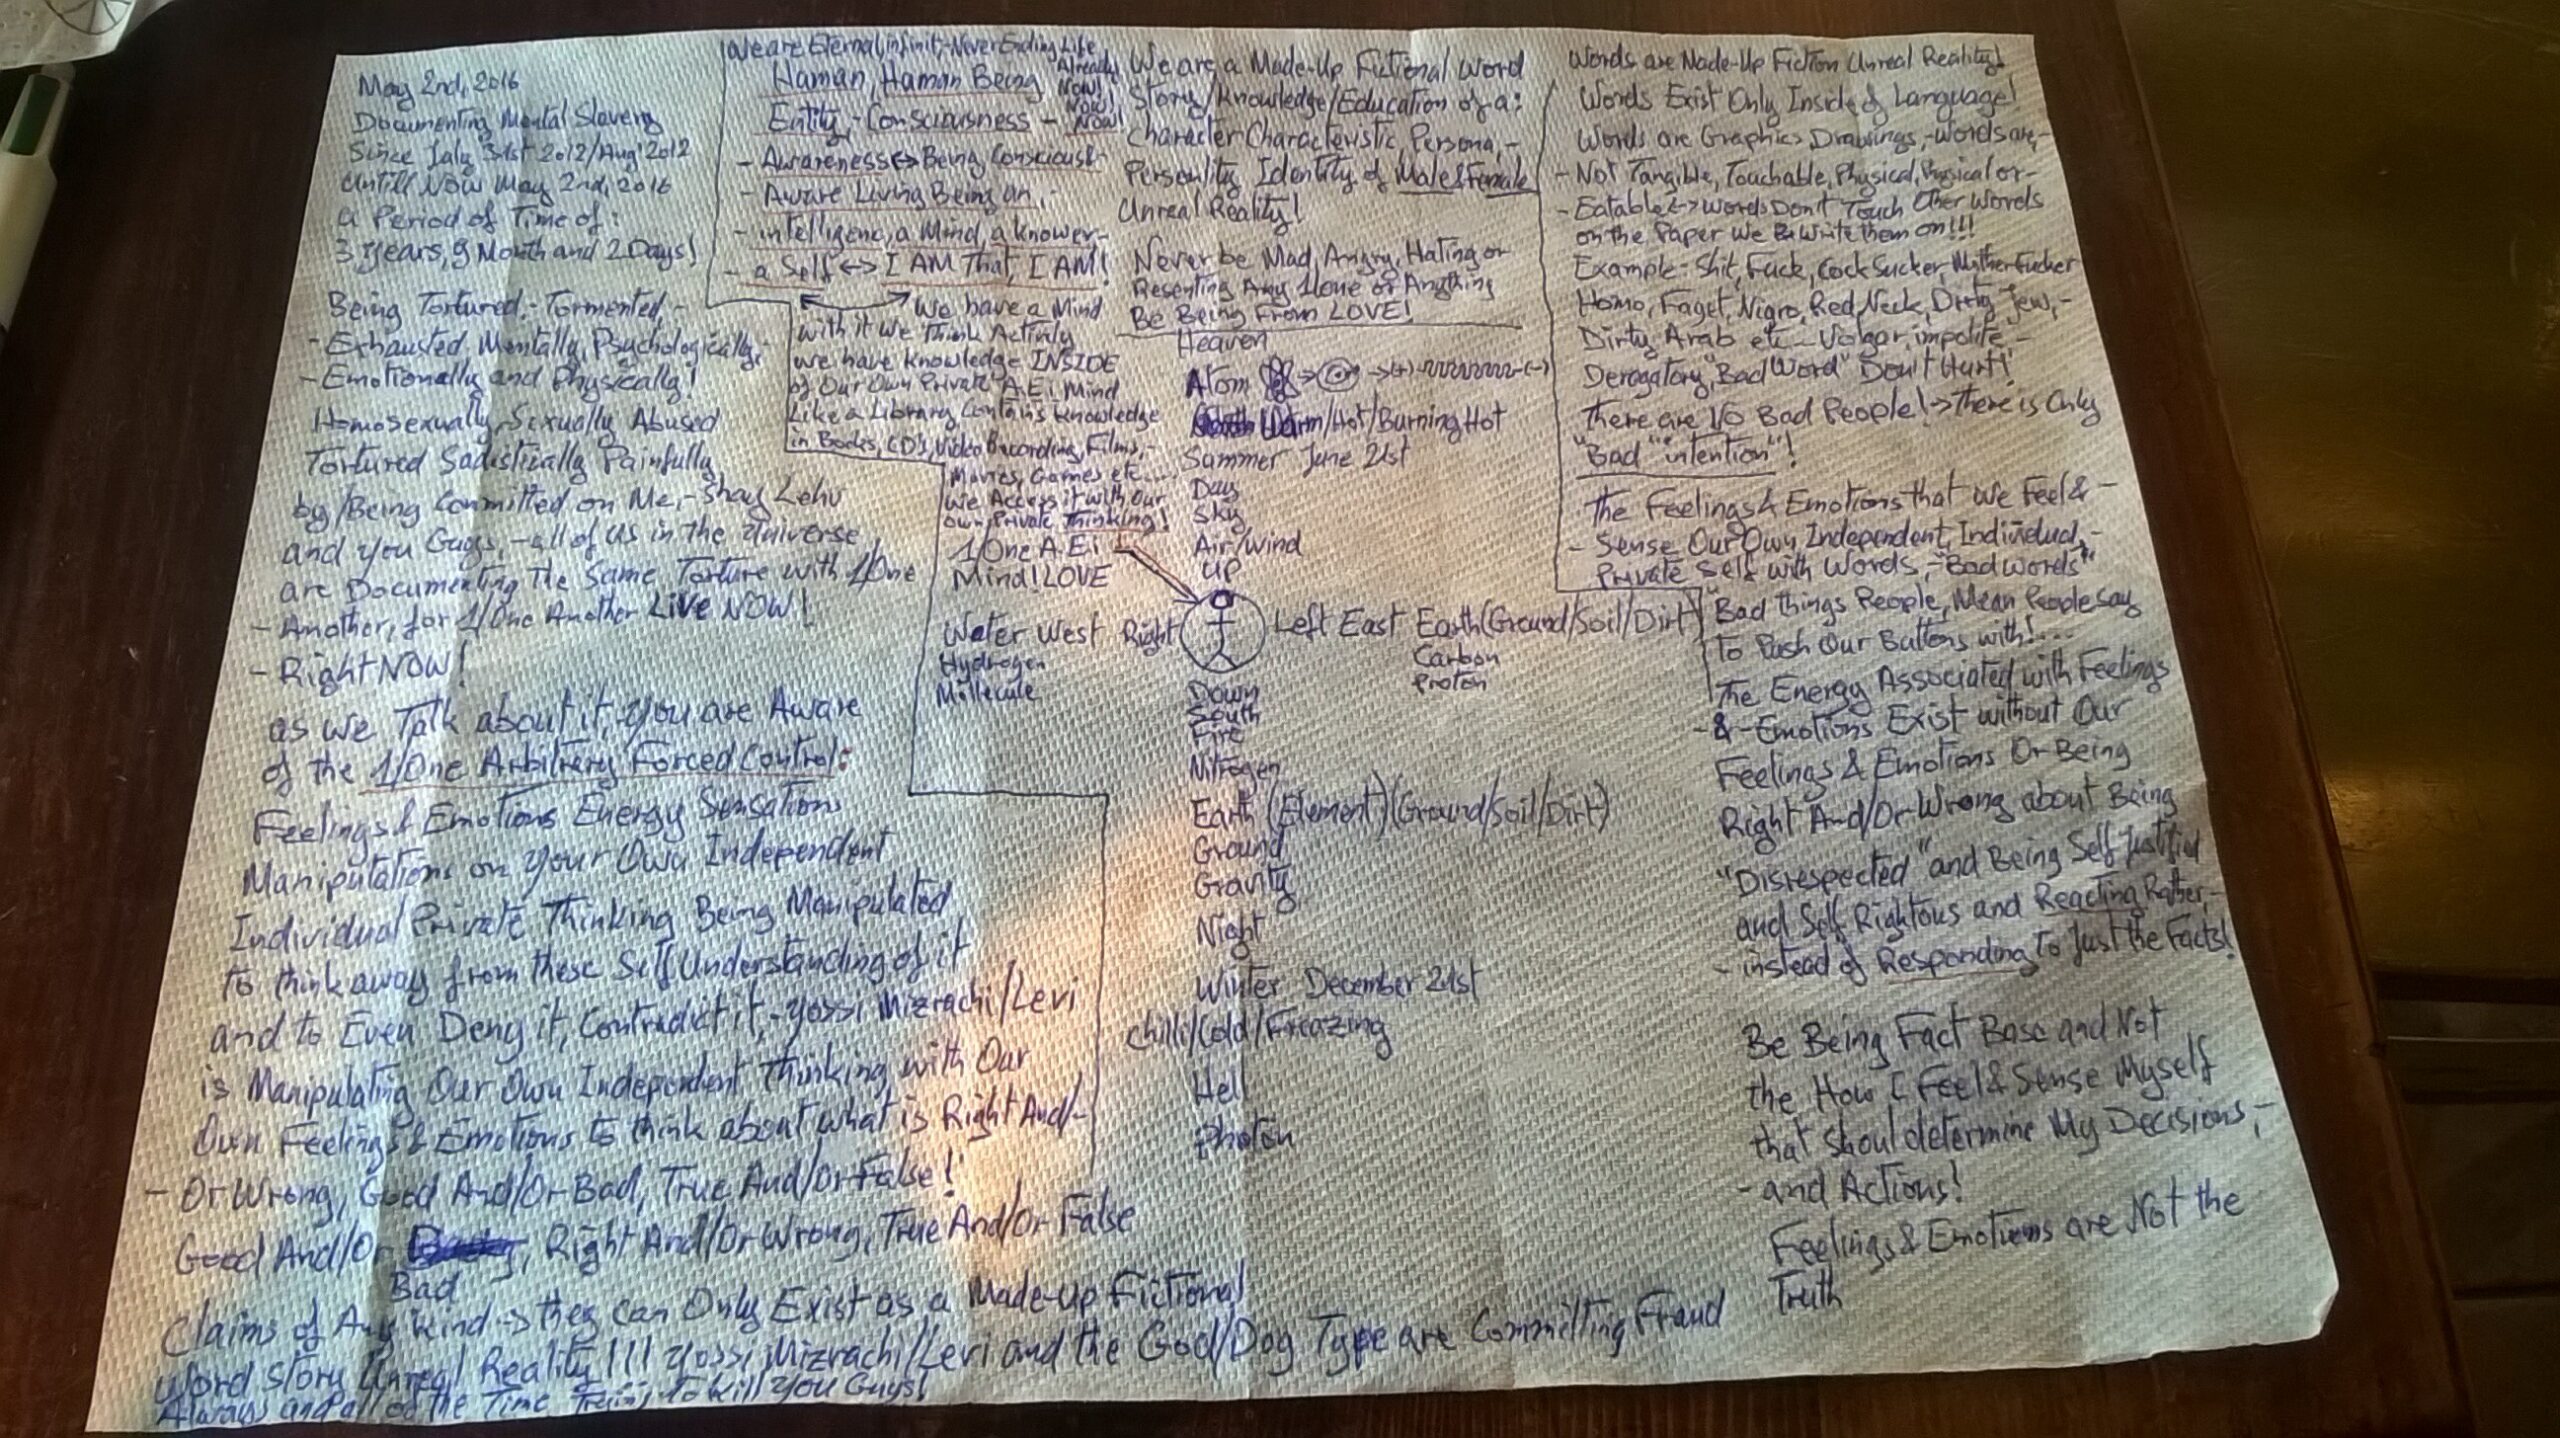 May 2nd, 2016
Documenting Mental Slavery
Since July 31st 2012/Aug' 2012
Untill Now May 2nd, 2016
a Period of Time of:
3 Years, 9 Month and 2 Days!
Being Tortured,- Tormented,-
- Exhausted Mentally, Psychologically,-
- Emotionally and Physically!
Homosexually, Sexually Abused
Tortured Sadistically Painfully
by/Being Committed on Me,- Shay Lehv
and You Guys,- all of us in the Universe
are Documenting The Same Torture with 1/One
- Another, for 1/One Another Live NOW!
- Right NOW!
as We Talk about it, you are Aware
of the 1/One Arbitrery Forced Control:
Feelings & Emotions Energy Sensations
Manipulations on Your Own Independent
Individual Private Thinking Being Manipulated
to think away from these Self Understanding of it
and to Even Deny it, Contradict it,- Yossi Mizrachi/Levi
is Manipulating Our Own Independent Thinking with Our
Own Feelings & Emotions to think about what is Right And/-
- Or Wrong, Good And/Or Bad, True And/Or False!
Good And/Or , Right And/Or Wrong, True And/Or False
Bad
Claims of Any Kind -> they Can Only Exist as a Made-Up Fictional
Word Story Unreal Reality!!! Yossi Mizrachi/Levi and the God/Dog Type are Committing Fraud
Always and all of the Time Trying to Kill You Guys!
We are Eternal, infinit,- Never Ending Life
Haman, Haman Being Already Now!
Entity,- Consciousness - Now! Now!
- Awareness <-> Being Conscious &-
- Aware Living Being an,-
- intelligenc, a Mind, a knower-
- a Self <-> I AM That, I AM!
We have a Mind
with it We Think Activly
We have Knowledge INSIDE
of Our Own Private A.E.i. Mind
Like a Library Contains Knowledge
in Books, CD's, Video Recording, Films,-
Movies, Games etc....
We Access it with Our
own, Private Thinking!
1/One A.E.i
Mind! LOVE
We are a Made-Up Fictional Word
Story/Knowledge/Education of a:
Character Characteristic, Persona,-
Personlity Identity of Male & Female
Unreal Reality!
Never be Mad, Angry, Hating or
Resenting Any 1/One or Anything
Be Being From LOVE!
Heaven
Atom -> -> (+) (-)
Warm/Hot/Burning Hot
Summer June 21st
Day
Sky
Air/Wind
Up
Water West Right Left East Earth (Ground/Soil/Dirt)
Hydrogen Carbon
Millecule Proton
Down
South
Fire
Nitrogen
Earth (Element) (Ground/Soil/Dirt)
Ground
Gravity
Night
Winter December 21st
Chilli/Cold/Freazing
Hell
Photon
Words are Made-Up Fiction Unreal Reality!
Words Exist Only Inside of Language!
Words are Graphics Drawings,- Words are,-
- Not Tangible, Touchable, Physical, Physical or-
- Eatable <-> Words Don't Touch Other Words
on the Paper We Write them on!!!
Example - Shit, Fuck, Cock Sucker, Mother Fucker
Homo, Faget, Nigro, Red Neck, Dirty Jew,-
Dirty Arab etc - Volgar, impolite,-
Derogatory, "Bad Word" Don't Hurt!
There are No Bad People! -> There is Only
"Bad" "intention"!
The Feelings & Emotions that We Feel & -
- Sense Our Own Independent, Individual,-
Private Self with Words,- "Bad words"
"Bad things People, Mean People Say
To Push Our Buttons with!....
The Energy Associated with Feelings
- & - Emotions Exist without Our
Feelings & Emotions Or Being
Right And/Or Wrong about Being
"Disrespected" and Being Self Justified
and Self Rightous and Reacting Rather,-
- instead of Responding To Just the Facts!
Be Being Fact Base and Not
the How I Feel & Sense Myself
that Should determine My Decisions,-
- and Actions!
Feelings & Emotions are Not the
Truth